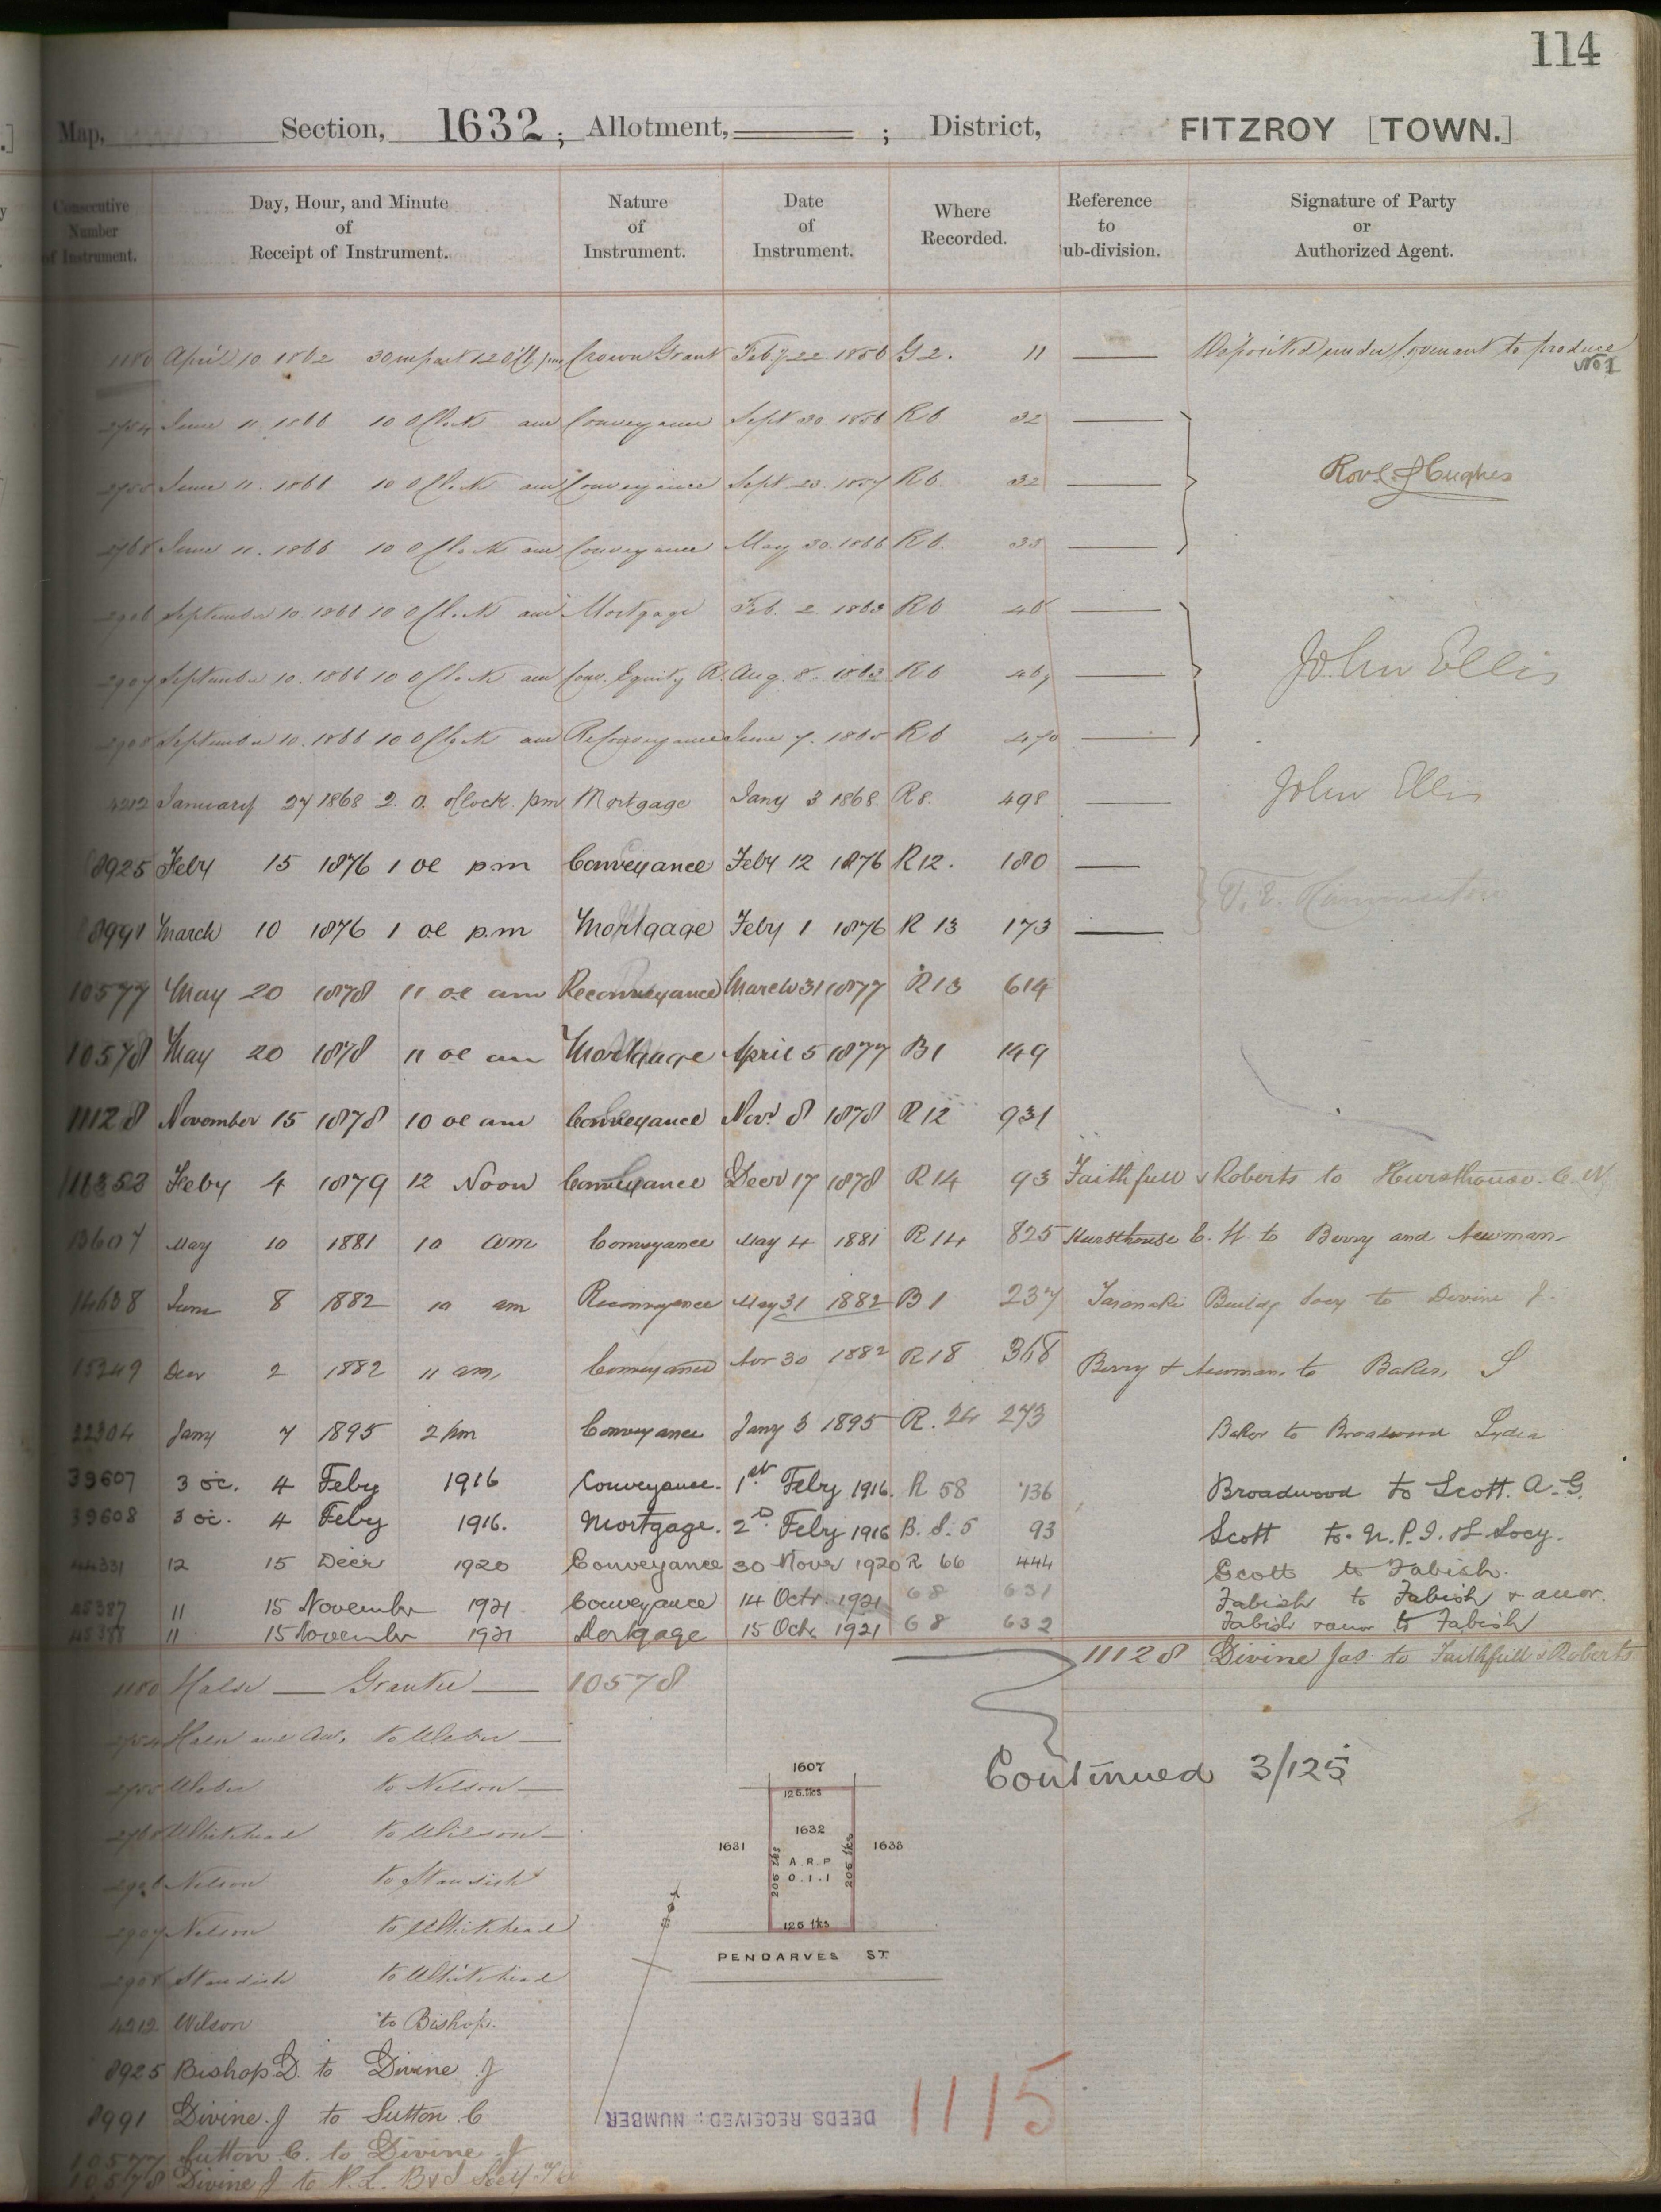 114
Map, Section, 1632 ; Allotment, ; District, FITZROY [TOWN.]
Consecutive Number of Instrument.
Day, Hour, and Minute of Receipt of Instrument.
Nature of Instrument.
Date of Instrument.
Where Recorded.
Reference to Sub-division.
Signature of Party or Authorized Agent.
1180 April 10 1862 30 m past 12 O'Clk pm Crown Grant Feby 22. 1856 G 2. 11 Deposited under Covenant to produce No 1
2754 June 11. 1866 10 O Clock am Conveyance Sept 30. 1856 R 6 32
2755 June 11. 1866 10 O Clock am Conveyance Sept 23. 1857 R 6. 32
2768 June 11. 1866 10 O Clock am Conveyance May 30. 1866 R 6. 33
Hughes
2906 September 10. 1866 10 O Clock am Mortgage Feb. 2 1863 R 6
2907 September 10. 1866 10 O Clock am Conv. Equity R. Aug. 8. 1863 R 6
John Ellis
2908 September 10. 1866 10 O Clock am Reconveyance June 7. 1865 R 6 470
4212 January 27 1868 2. O. Clock pm Mortgage Jany 3 1868. R 8. 498 John Ellis
8925 Feby 15 1876 1 oc p.m Conveyance Feby 12 1876 R 12. 180
8991 March 10 1876 1 oc p.m Mortgage Feby 1 1876 R 13 173
10577 May 20 1878 11 oc am Reconveyance March 31 1877 R 13 614
10578 May 20 1878 11 oc am Mortgage April 5 1877 B 1 149
11128 November 15 1878 10 oc am Conveyance Novr 8 1878 R 12 931
Feby 4 1879 12 Noon Conveyance Decr 17 1878 R 14 93 Faithfull & Roberts to Hursthouse C. W.
13607 May 10 1881 10 am Conveyance May 4 1881 R 14 825 Hursthouse C. W to Berry and Newman
14638 June 8 1882 10 am Reconveyance May 31 1882 B 1 237 Taranaki Buildg Socy to Divine J.
15249 Decr 2 1882 11 am Conveyance Nov 30 1882 R 18 368 Berry & Newman to Baker, S
22304 Jany 7 1895 2 pm Conveyance Jany 3 1895 R. 24 273 Baker to Broadwood Lydia
39607 3 oc. 4 Feby 1916 Conveyance. 1st Feby 1916. R 58 136 Broadwood to Scott. A. G.
39608 3 oc. 4 Feby 1916. Mortgage. 2D Feby 1916 B. S. 5 93 Scott to N. P. I. & L Socy.
44331 12 15 Decr 1920 Conveyance 30 Novr 1920 R 66 444 Scott to Fabish.
45387 11 15 November 1921 Conveyance 14 Octr. 1921 68 631 Fabish to Fabish & anor.
45388 11 15 November 1921 Mortgage 15 Octr 1921 68 632 Fabish & anor to Fabish
11128 Divine Jas to Faithfull & Roberts
1180 Halse Grantee 10578
2754 Halse and Anr. to Weber
2755 Weber to Nelson
2768 Whitehead to Wilson
2906 Nelson to Standish
2907 Nelson to Whitehead
2908 Standish to Whitehead
4212 Wilson to Bishop.
8925 Bishop D. to Divine J
8991 Divine. J to Sutton C
10577 Sutton C. to Divine J
10578 Divine J to
Continued 3/125
1607
125 lks
1632
1631
1633
206 lks
A. R. P
0. 1. 1
206 lks
125 lks
PENDARVES ST.
DEEDS RECEIVED: NUMBER
1115